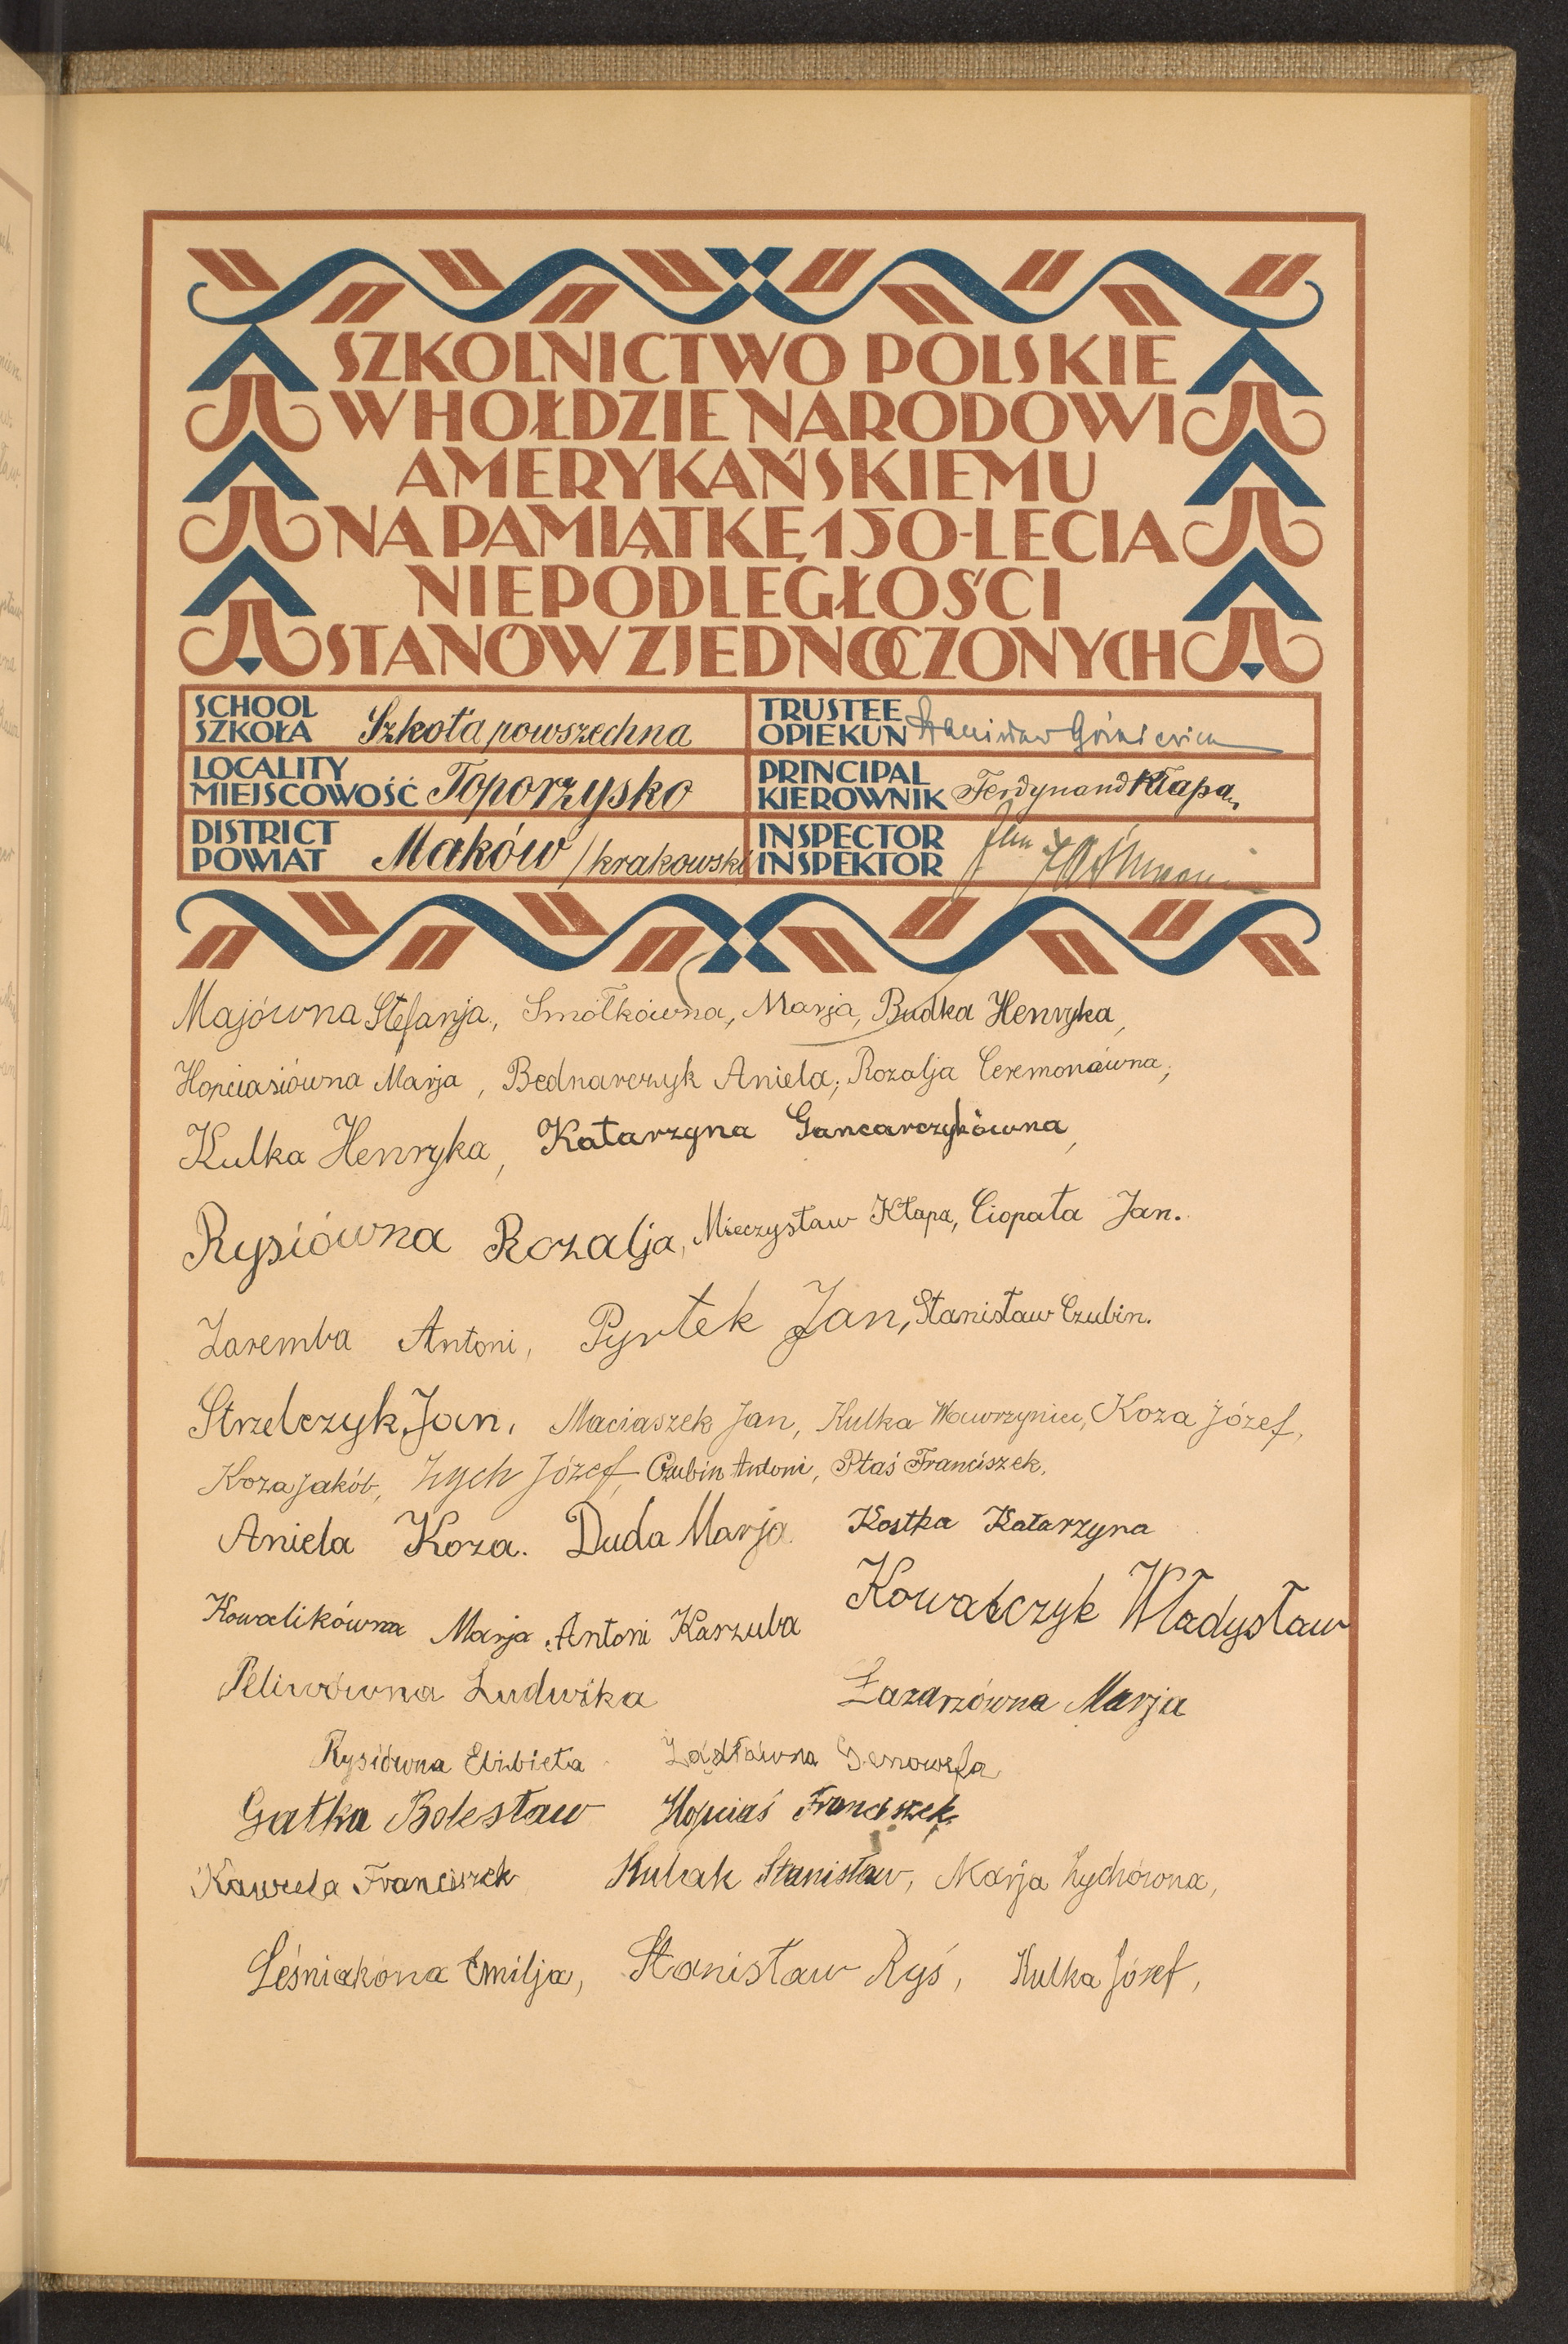 SZKOLNICTWO POLSKIE
W HOŁDZIE NARODOWI
AMERYKAŃSKIEMU
NA PAMIĄTKĘ 150-LECIA
NIEPODLEGŁOŚCI
STANÓW ZJEDNOCZONYCH
SCHOOL
SZKOŁA Szkoła powszechna
TRUSTEE
OPIEKUN Stanisław
LOCALITY
MIEJSCOWOŚĆ Toporzysko
PRINCIPAL
KIEROWNIK Ferdynand Kłapa
DISTRICT
POWIAT Maków /krakowski
INSPECTOR
INSPEKTOR Jan
Majówna Stefanja, Smółkówna, Marja, Budka Henryka,
Hopciasiówna Marja, Bednarczyk Aniela, Rozalja Ceremonówna,
Kulka Henryka, Katarzyna Gancarczykówna,
Rysiówna Rozalja, Mieczysław Kłapa, Ciopała Jan.
Zaremba Antoni, Pyrtek Jan, Stanisław Czubin.
Strzelczyk Jan, Maciaszek Jan, Kulka Wawrzyniec, Koza Józef,
Koza Jakób, Zych Józef, Czubin Antoni, Ptaś Franciszek.
Aniela Koza. Duda Marja. Kostka Katarzyna
Kowalikówna Marja, Antoni Karzuba Kowalczyk Władysław
Peliwówna Ludwika Łazarzówna Marja
Rysiówna Elżbieta Genowefa
Gałka Bolesław Hopciaś Franciszek
Kawula Franciszek Kubak Stanisław, Marja Zychówna,
Leśniakóna Emilja, Stanisław Ryś, Kulka Józef,